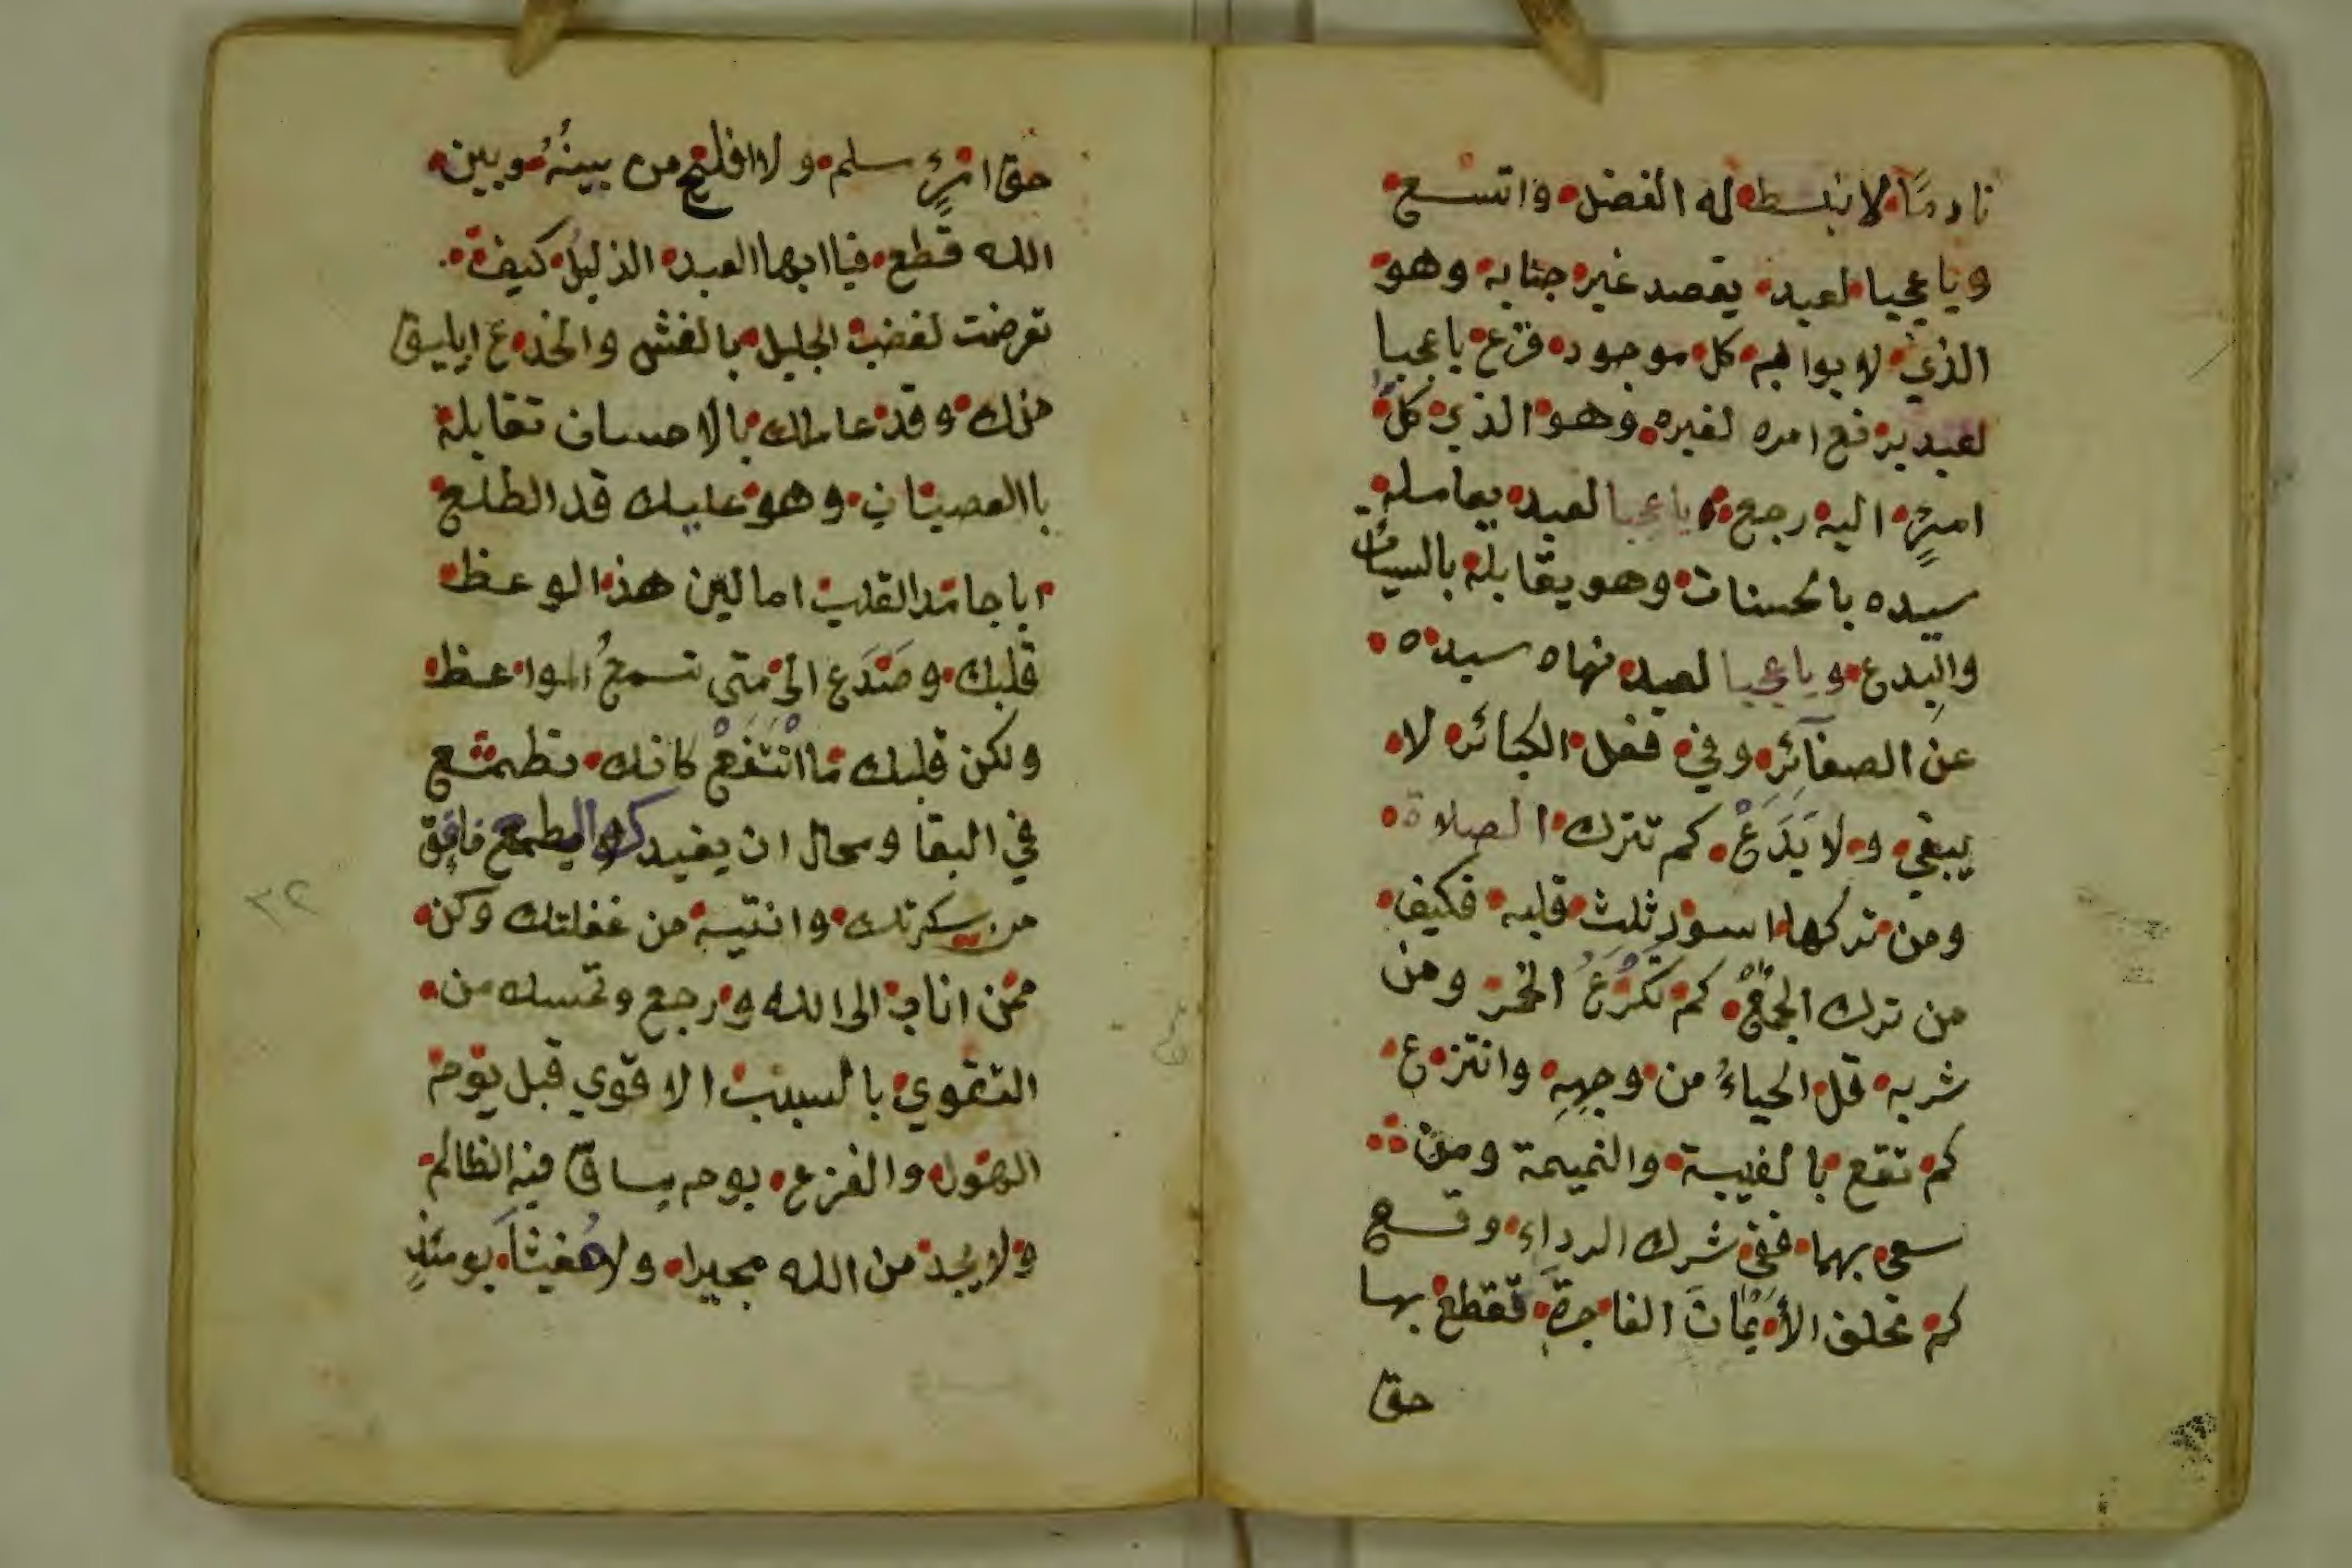 نادمًا لانبسط له الفضل واتسع
وياعجبا لعبد يقصد غير جنابه وهو
الذي لابوابه كل موجود قرع ياعجبا
لعبد يرفع امره لغيره وهو الذي كلُّ
امرٍءٍ اليه رجع ياعجبا لعبد يعامله
سيده بالحسنات وهو يقابله بالسيئات
والبِدع وياعجبا لعبد نهاه سيده
عن الصغآئر وفي فعل الكبائر لا
يبقي ولا يَدَعْ كم تترك الصلاة
ومن تركها اسود ثلث قلبه فكيف
من ترك الجُمَعْ كم تَكْرَعُ الخمر ومن
شربه قل الحياءُ من وجهِهِ وانتزع
كم تقع بالغيبة والنميمة ومن
سعى بهما ففي شرك الرداءِ وقع
كم تحلف الأَيْمَانَ الفاجرةَ فتقطع بها
حق
حق امرٍءٍ سلم ولا افلح من بينهُ وبين
الله قطع فيا ايها العبد الذليل كيف
تعرضت لغضب الجليل بالغش والخدع ايليق
منك وقد عاملك بالاحسان تقابله
باالعصيان وهو عليك قد الطلع
اياجامد القلب اما لين هذا الوعظ
قلبك وصَدَع الى متى تسمعُ المواعظ
ولكن قلبك ما انْتَفَعْ كانك تطمع
في البقا ومحال ان يفيدك المطمع فافِق
من سكرتك وانتبه من غفلتك وكن
ممن اناب الى الله ورجع وتمسك من
التقوي بالسبب الاقوي قبل يوم
الهول والفزع يوم يساق فيه الظالم
ولا يجد من الله مجيرا ولا مُغيثاً يومئذٍ
٣٢